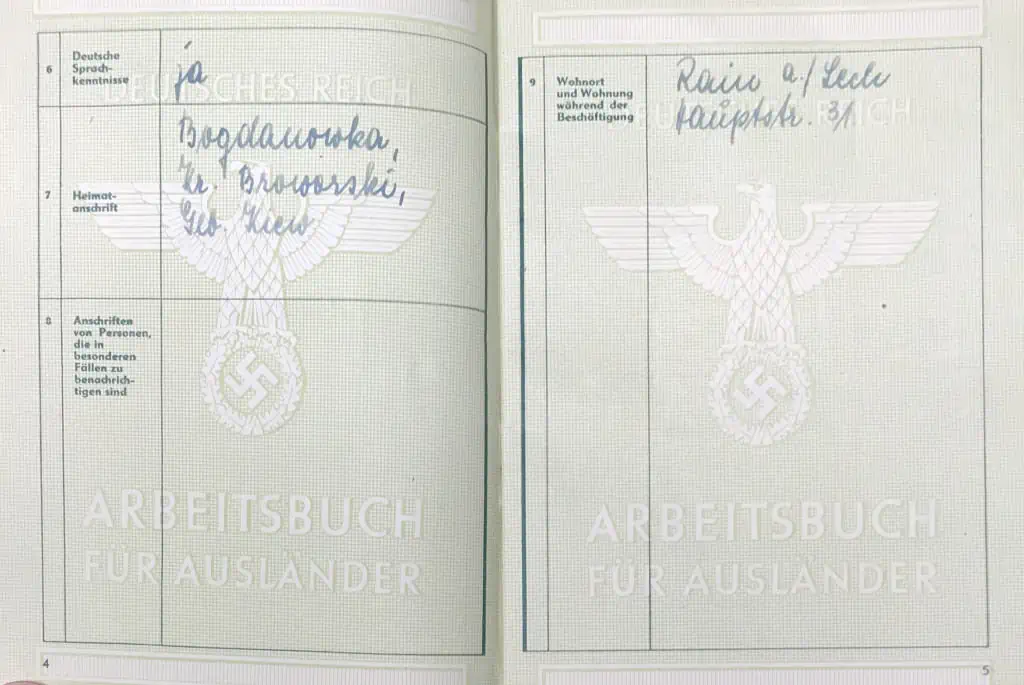 6
Deutsche
Sprach-
kenntnisse
ja
7
Heimat-
anschrift
Bogdanowka,
Kr. Broworski,
Geb. Kiew
8
Anschriften
von Personen,
die in
besonderen
Fällen zu
benachrich-
tigen sind
DEUTSCHES REICH
ARBEITSBUCH
FÜR AUSLÄNDER
4
9
Wohnort
und Wohnung
während der
Beschäftigung
Rain a./Lech
Hauptstr. 31
DEUTSCHES REICH
ARBEITSBUCH
FÜR AUSLÄNDER
5